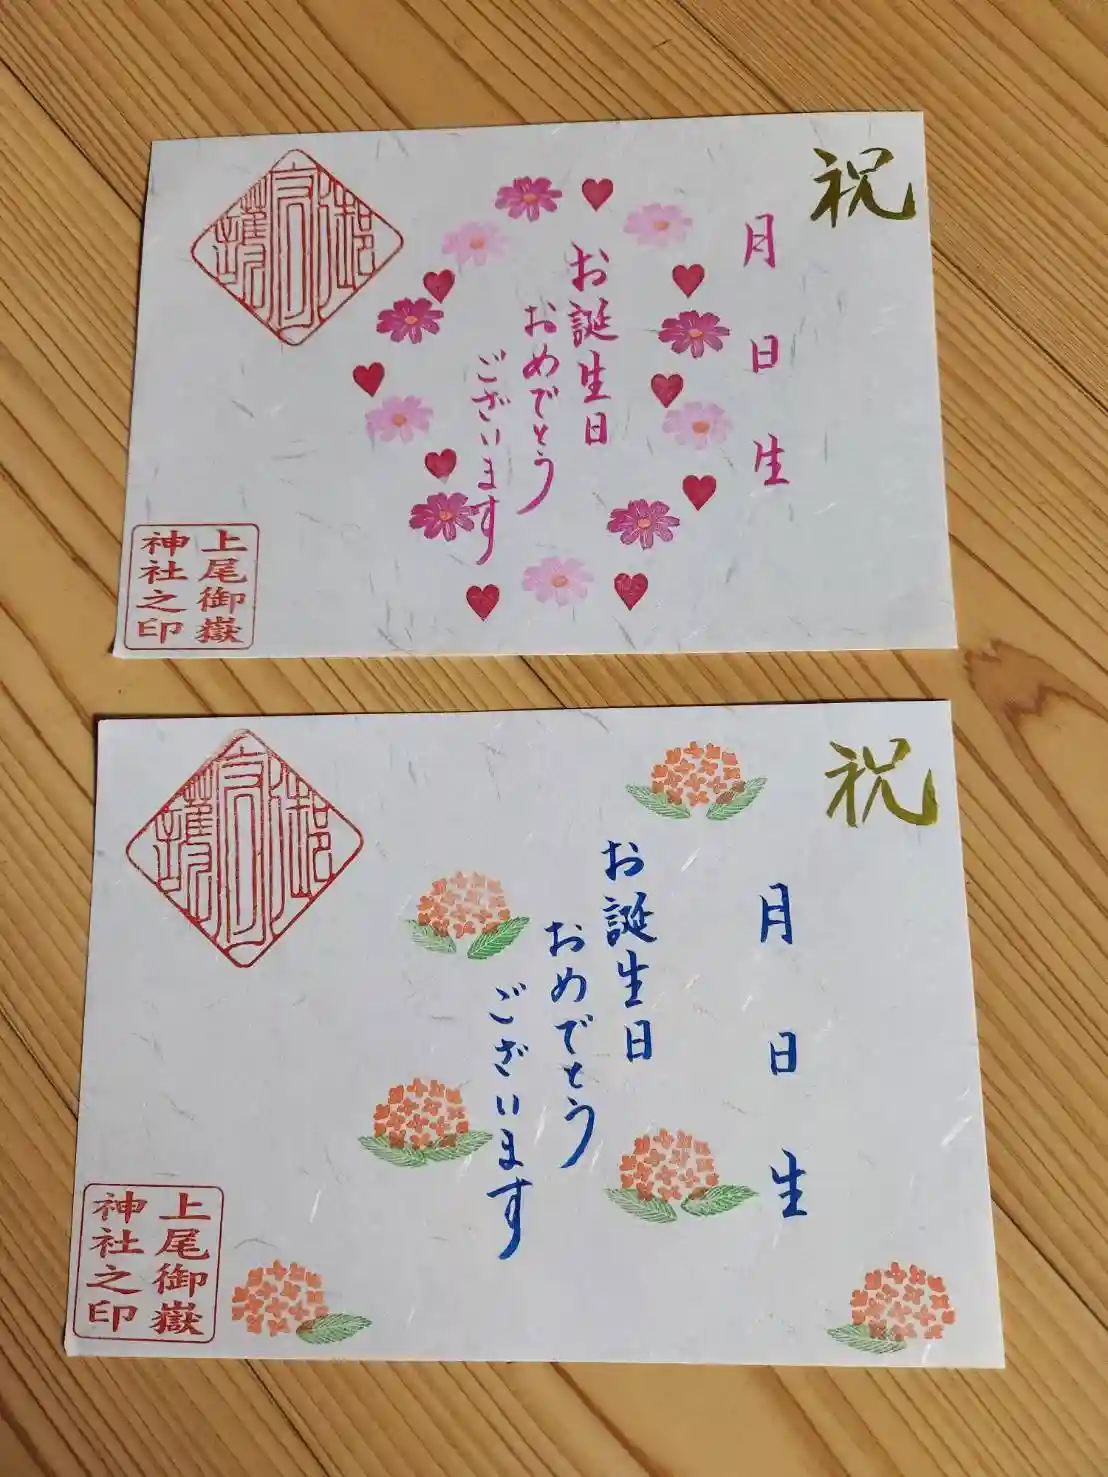 祝
月 日 生
お誕生日
おめでとう
ございます
御守護
上尾御嶽
神社之印
祝
月 日 生
お誕生日
おめでとう
ございます
御守護
上尾御嶽
神社之印